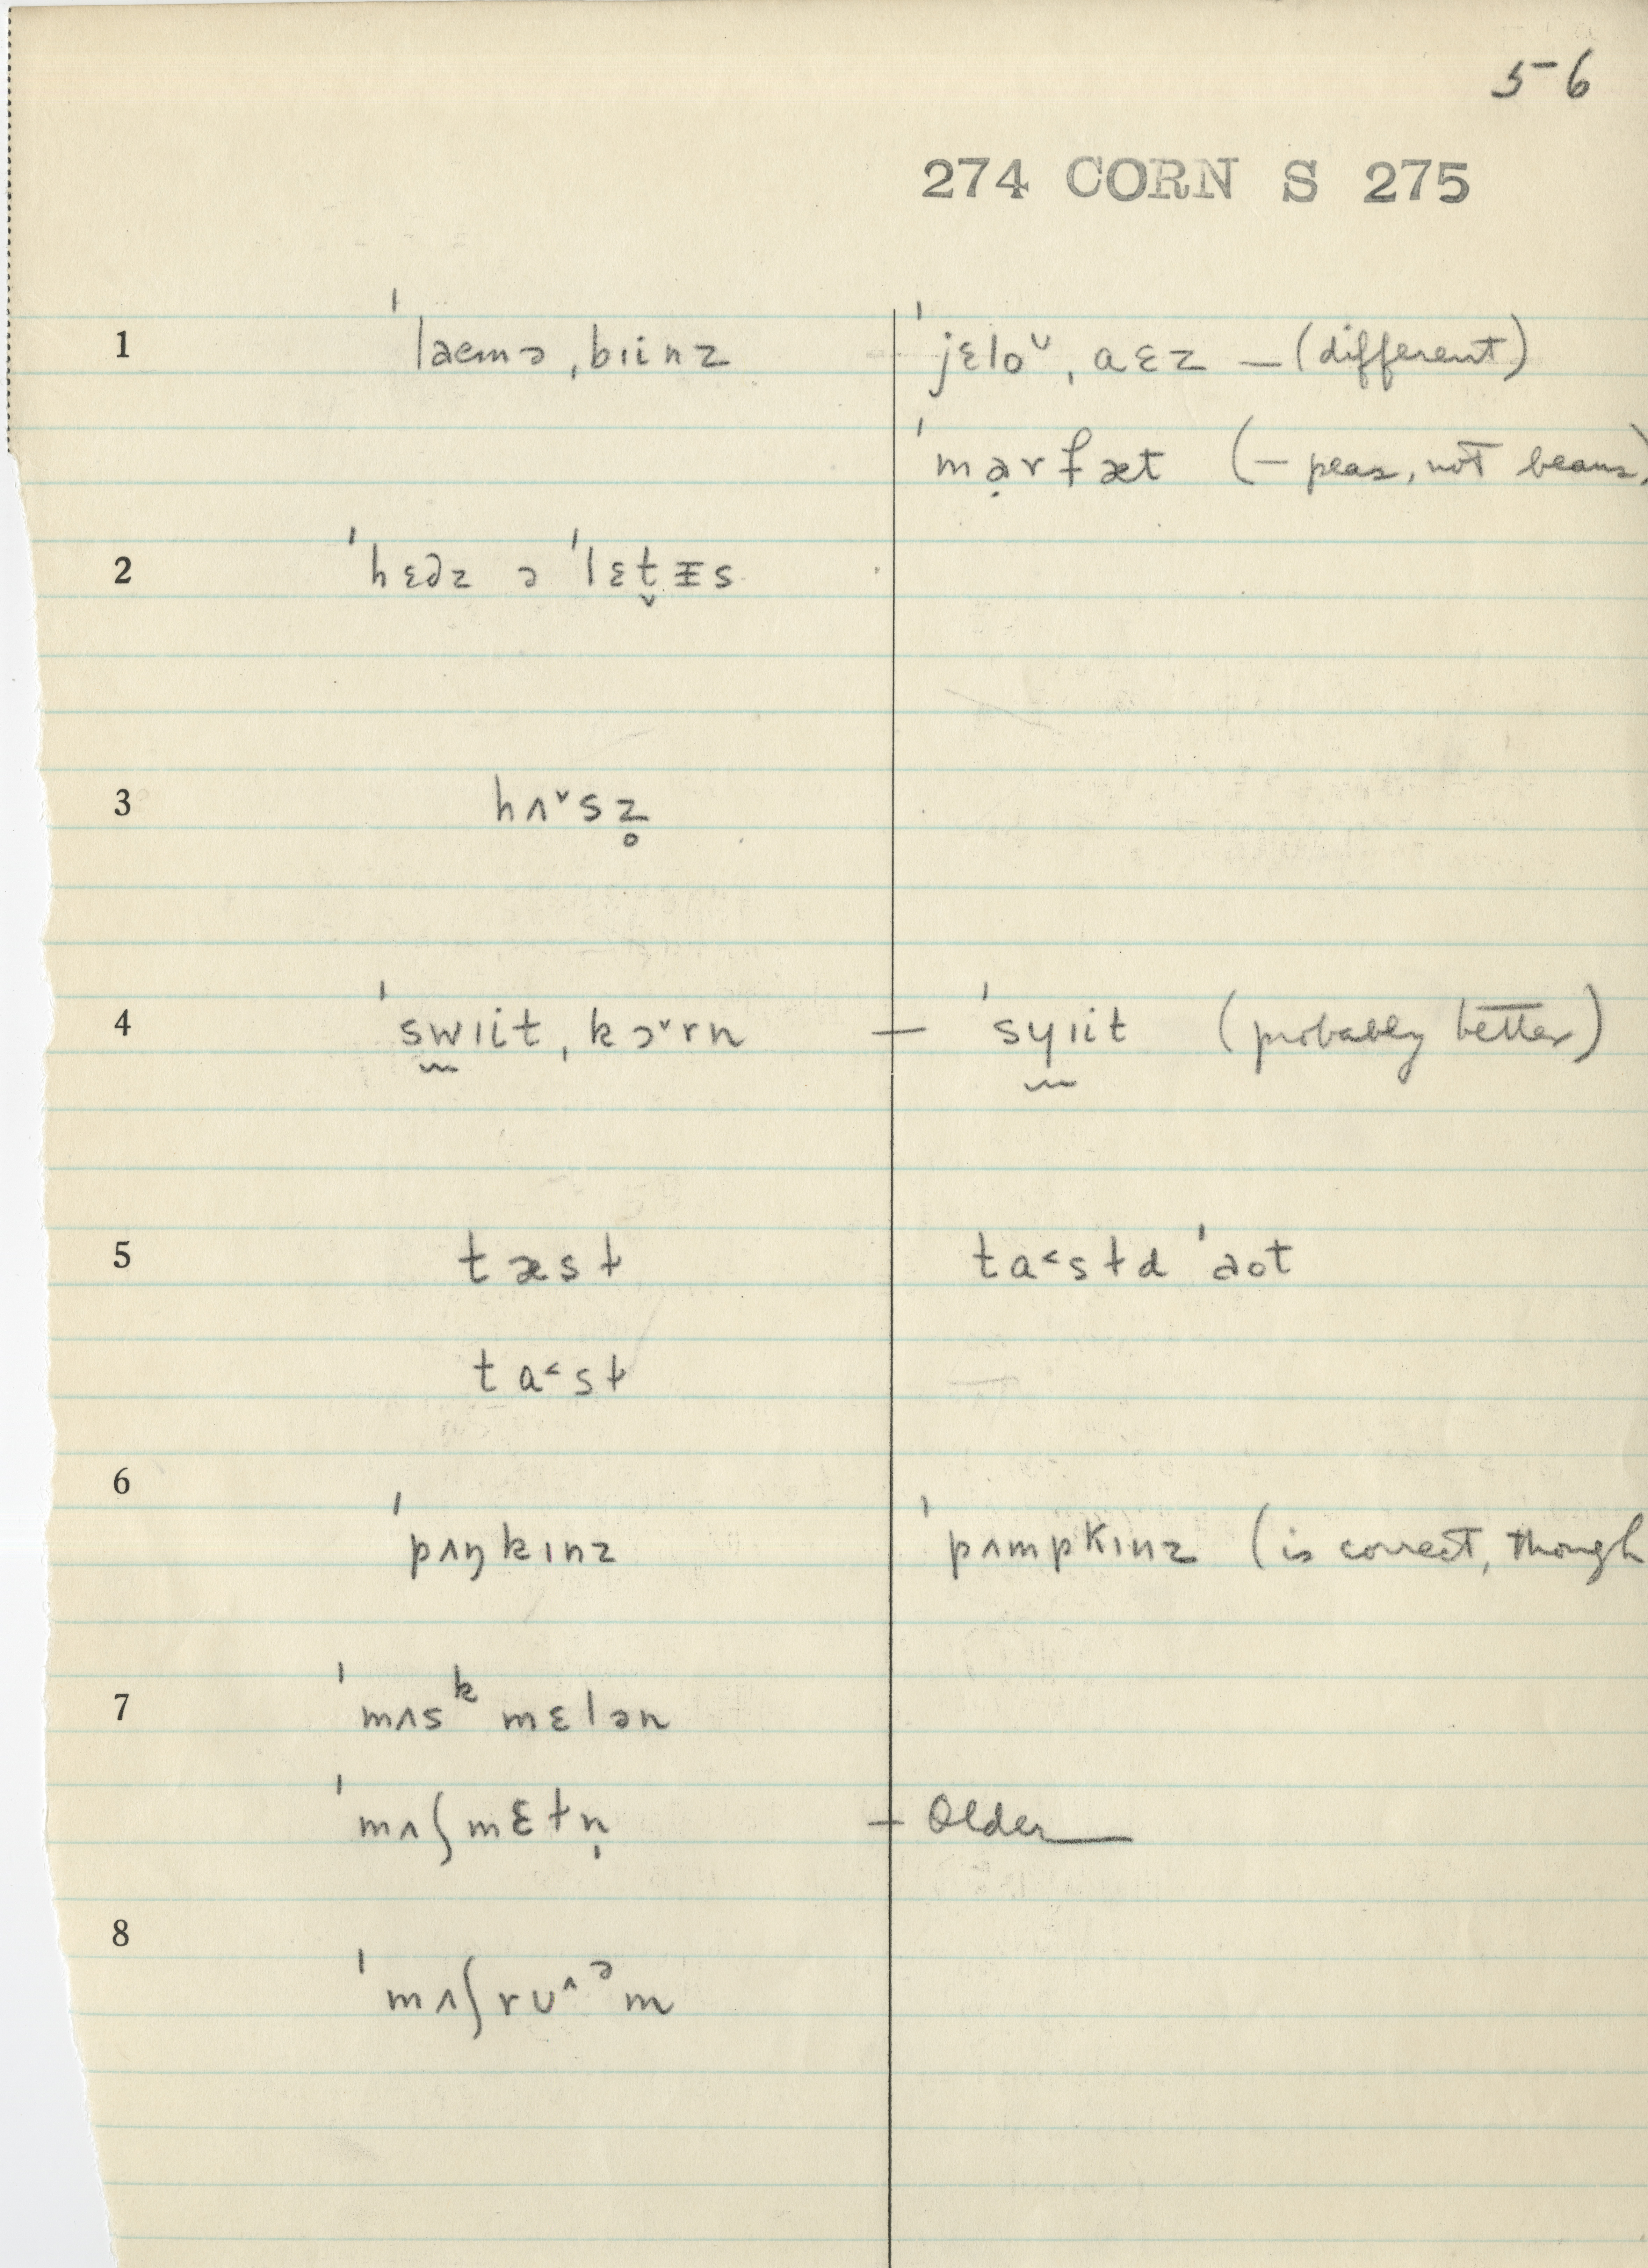 5-6
274 CORN S 275
1 ˈlaemə ˌbɪinz ˈjɛloᵛ ˌaɛz — (different)
ˈmạrfæt (— peas, not beans)
2 ˈhɛdz ə ˈlɛt̬ᵻs
3 hʌ˅sz̥
4 ˈswɪit ˌkɔ˅rn — ˈsyɪit (probably better)
5 tæst ta˂std ˈaot
ta˂st
6
ˈpʌŋkɪnz ˈpʌmpkɪnz (is correct, though
7 ˈmʌsᵏmɛlən
ˈmʌʃmɛtn̩ — Older
8
ˈmʌʃrʊ˄ᵊm